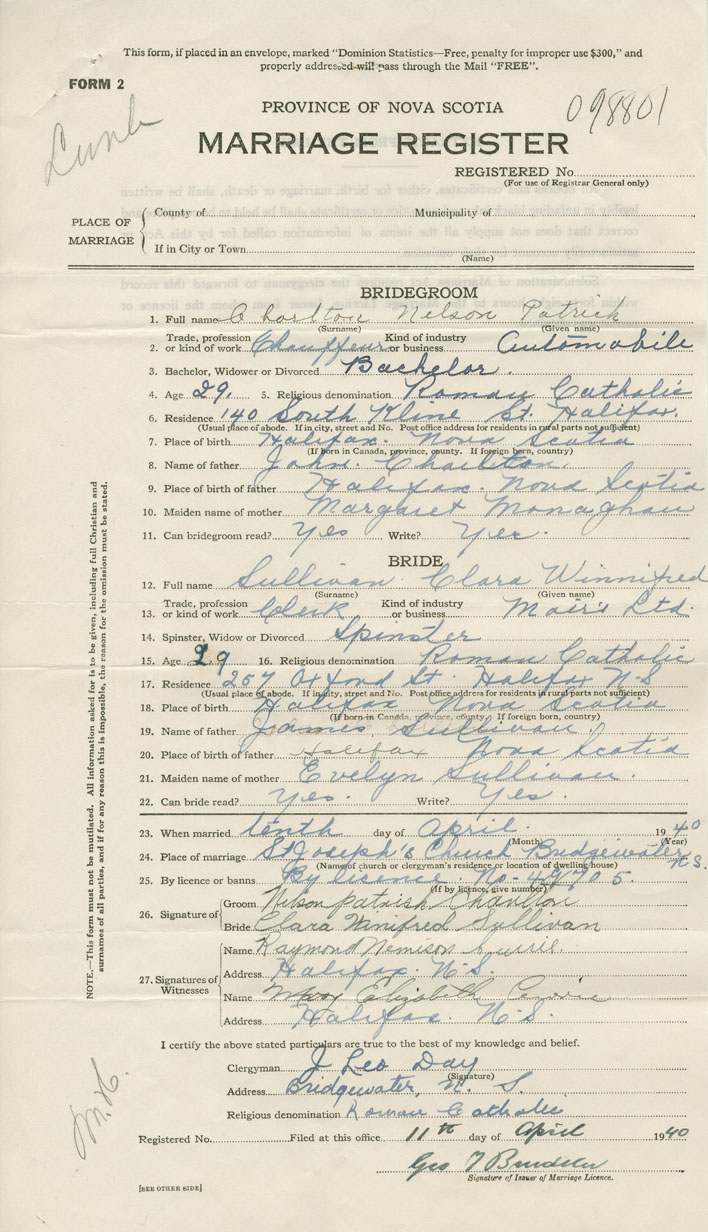 This form, if placed in an envelope, marked "Dominion Statistics—Free, penalty for improper use $300," and
properly addressed will pass through the Mail "FREE".
FORM 2
098801
PROVINCE OF NOVA SCOTIA
Lunb
MARRIAGE REGISTER
REGISTERED No.
(For use of Registrar General only)
PLACE OF MARRIAGE
County of Municipality of
If in City or Town
(Name)
BRIDEGROOM
1. Full name Charlton Nelson Patrick
(Surname) (Given name)
2. Trade, profession or kind of work Chauffeur Kind of industry or business Automobile
3. Bachelor, Widower or Divorced Bachelor.
4. Age 29. 5. Religious denomination Roman Catholic
6. Residence 140 South Kline St. Halifax.
(Usual place of abode. If in city, street and No. Post office address for residents in rural parts not sufficient)
7. Place of birth Halifax. Nova Scotia
(If born in Canada, province, county. If foreign born, country)
8. Name of father John. Charlton.
9. Place of birth of father Halifax. Nova Scotia
10. Maiden name of mother Margaret Monaghan
11. Can bridegroom read? Yes Write? Yes.
BRIDE
12. Full name Sullivan Clara Winnifred
(Surname) (Given name)
13. Trade, profession or kind of work Clerk Kind of industry or business Moirs Ltd.
14. Spinster, Widow or Divorced Spinster
15. Age 29 16. Religious denomination Roman Catholic
17. Residence 257 Oxford St. Halifax N-S
(Usual place of abode. If in city, street and No. Post office address for residents in rural parts not sufficient)
18. Place of birth Halifax Nova Scotia
(If born in Canada, province, county. If foreign born, country)
19. Name of father James Sullivan
20. Place of birth of father Halifax Nova Scotia
21. Maiden name of mother Evelyn Sullivan.
22. Can bride read? Yes. Write? Yes.
23. When married tenth day of April. 1940
(Month) (Year)
24. Place of marriage St Joseph's Church Bridgewater N.S.
(Name of church or clergyman's residence or location of dwelling/house)
25. By licence or banns. By licence No-49705.
(If by licence, give number)
26. Signature of
Groom Nelson patrick Charlton
Bride Clara Winifred Sullivan
27. Signatures of Witnesses
Name Raymond
Address Halifax. N-S.
Name Mary Elizabeth
Address Halifax. N-S.
I certify the above stated particulars are true to the best of my knowledge and belief.
Clergyman J Leo Day
(Signature)
Address Bridgewater, N. S.
Religious denomination Roman Catholic
Registered No. Filed at this office 11th day of April 1940
Geo
Signature of Issuer of Marriage Licence.
[SEE OTHER SIDE]
NOTE.—This form must not be mutilated. All information asked for is to be given, including full Christian and
surnames of all parties, and if for any reason this is impossible, the reason for the omission must be stated.